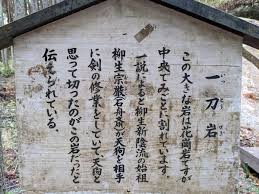 一刀岩
この大きな岩は花崗岩ですが
中央でみごとに割れています
一説によると柳生新陰流の始祖
柳生宗厳石舟斎が天狗を相手
に剣の修業をしていて、天狗と
思って切ったのがこの岩だったと
伝えられている。